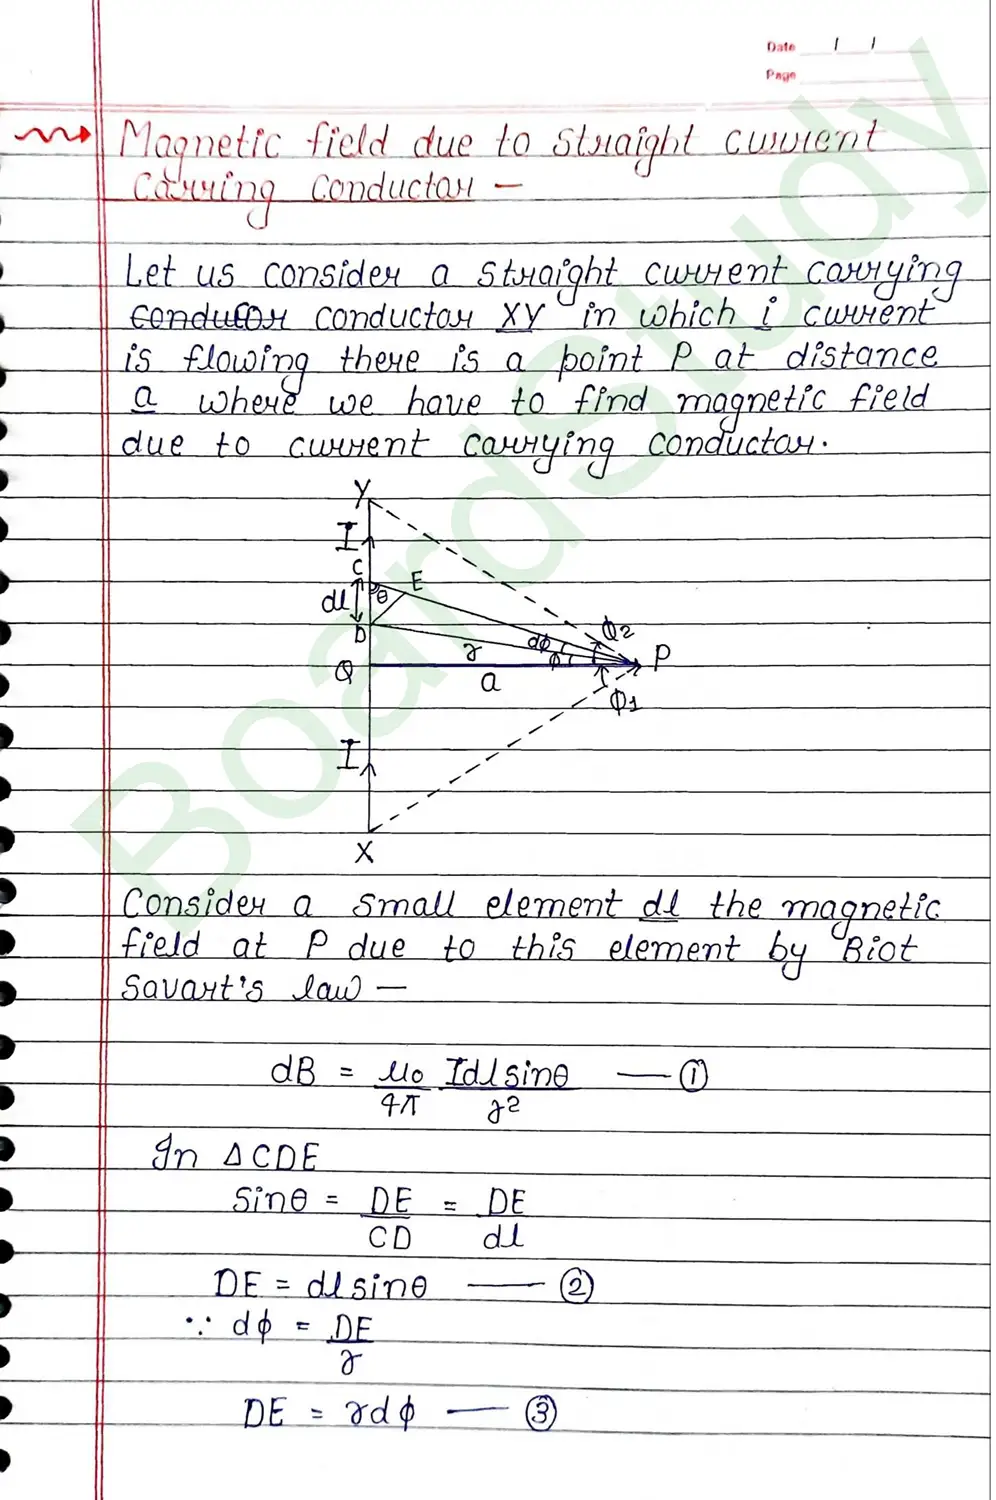 Date / /
Page
Magnetic field due to straight current
Carring conductor —
Let us consider a straight current carrying
condutor conductor XY in which i current
is flowing there is a point P at distance
a where we have to find magnetic field
due to current carrying conductor.
Y
I
C
E
θ
dl
D
r
dϕ
ϕ
ϕ2
P
Q
a
ϕ1
I
X
Consider a small element dl the magnetic
field at P due to this element by Biot
Savart's law —
dB = μ0/4π Idlsinθ/r² — ①
In ΔCDE
Sinθ = DE/CD = DE/dl
DE = dlsinθ — ②
∵ dϕ = DE/r
DE = rdϕ — ③
BoardStudy